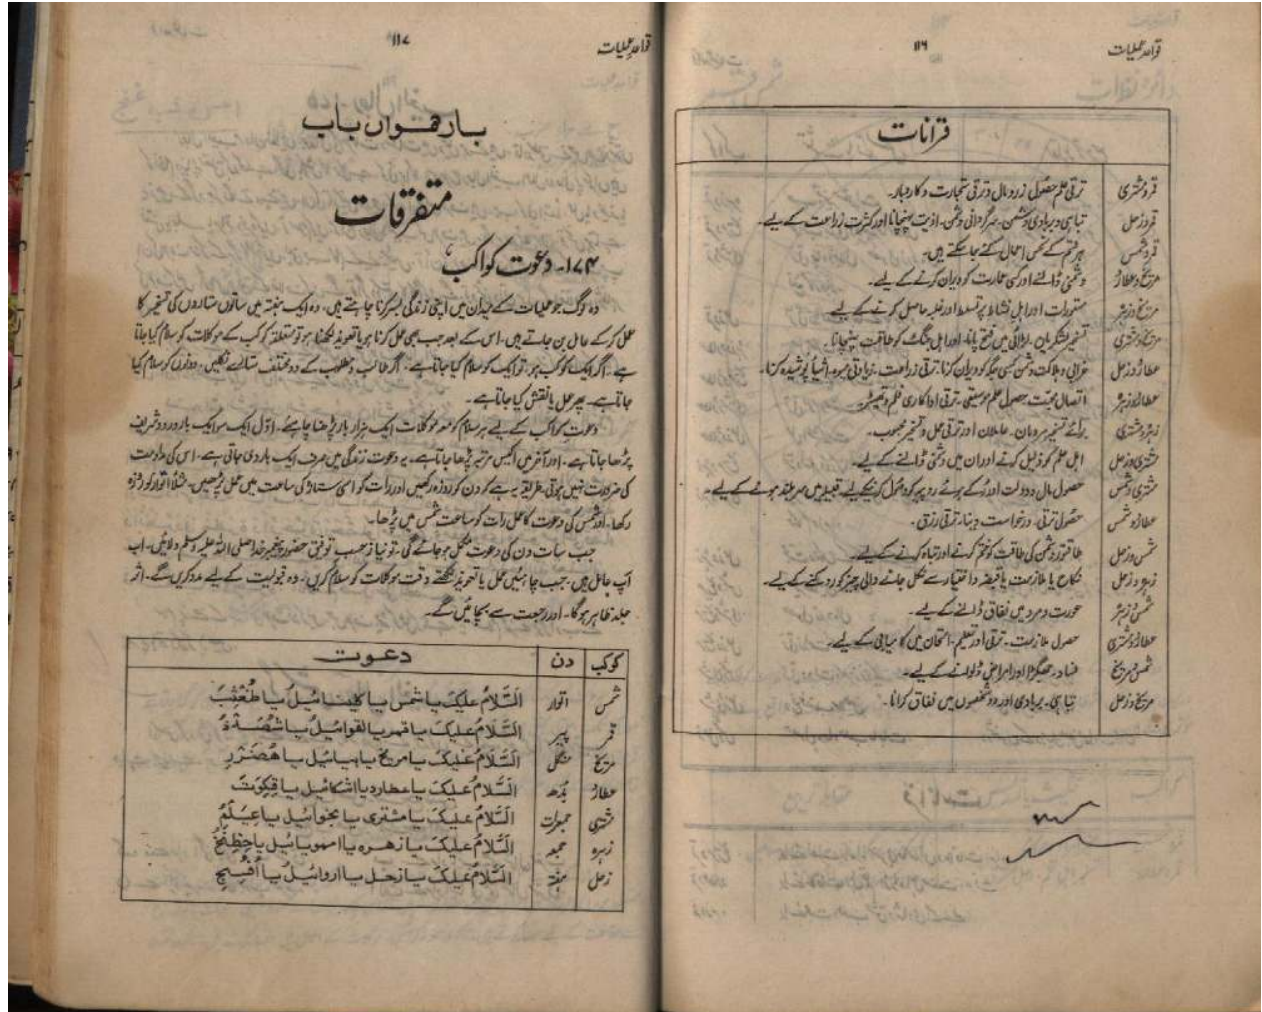 قواعد عملیات
۱۱۶
قرانات
قمر و مشتری ترقی علم حصول زر و مال و ترقی تجارت و کاروبار۔
قمر و زحل تباہی و بربادی دشمن۔ سرگردانی دشمن۔ اذیت پہنچانا اور کثرت زراعت کے لیے۔
قمر و شمس ہر قسم کے نحس اعمال کئے جا سکتے ہیں۔
مریخ و عطارد دشمنی ڈالنے اور کسی عمارت کو ویران کرنے کے لیے۔
مریخ و زہرہ مستورات اور اہل نشاط پر تسلط اور غلبہ حاصل کرنے کے لیے
مریخ و مشتری تسخیر لشکریان۔ لڑائی میں فتح پانا۔ اور اہل جنگ کو طاقت پہنچانا۔
عطارد و زحل خرابی و ہلاکت دشمن کسی جگہ کو ویران کرنا۔ ترقی زراعت۔ زیادتی میوہ۔ اشیاء پوشیدہ کرنا۔
عطارد و زہرہ اتصال محبت حصول علم موسیقی۔ ترقی اداکاری فلم و تھیٹر۔
زہرہ و مشتری برائے تسخیر مردمان۔ عاملان اور ترقی عمل و تسخیر محبوب۔
مشتری و زحل اہل علم کو ذلیل کرنے اور ان میں دشمنی ڈالنے کے لیے۔
مشتری و شمس حصول مال و دولت اور رُکے ہوئے روپیہ کو وصول کرنے کیلیے۔ قبیلہ میں سربلند ہونے کے لیے۔
عطارد و شمس حصول ترقی۔ درخواست دینا۔ ترقی رزق۔
شمس و زحل طاقتور دشمن کی طاقت کو ختم کرنے اور تباہ کرنے کے لیے۔
زہرہ و زحل نکاح یا ملازمت یا قبضہ و اختیار سے نکل جانے والی چیز کو روکنے کے لیے۔
شمس و زہرہ عورت و مرد میں نفاق ڈالنے کے لیے۔
عطارد و مشتری حصول ملازمت۔ ترقی اور تعلیم۔ امتحان میں کامیابی کے لیے۔
شمس و مریخ فساد۔ جھگڑا اور امراض ڈلوانے کے لیے۔
مریخ و زحل تباہی۔ بربادی اور دو شخصوں میں نفاق کرانا۔
قواعد عملیات
۱۱۷
بارھواں باب
متفرقات
۱۷۴۔ دعوت کواکب
وہ لوگ جو عملیات کے میدان میں اپنی زندگی بسر کرنا چاہتے ہیں۔ وہ ایک ہفتہ میں ساتوں ستاروں کی تسخیر کا
عمل کر کے عامل بن جاتے ہیں۔ اس کے بعد جب بھی عمل کرنا ہو یا تعویذ لکھنا ہو تو متعلقہ کوکب کے موکلات کو سلام کیا جاتا
ہے۔ اگر ایک کوکب ہو۔ تو ایک کو سلام کیا جاتا ہے۔ اگر طالب و مطلوب کے دو مختلف ستارے نکلیں۔ دونوں کو سلام کیا
جاتا ہے۔ پھر عمل یا نقش کیا جاتا ہے۔
دعوت کواکب کے لیے ہر سلام کو معہ موکلات ایک ہزار بار پڑھنا چاہئے۔ اول ایک سو ایک بار درود شریف
پڑھا جاتا ہے۔ اور آخر میں اکیس مرتبہ پڑھا جاتا ہے۔ یہ دعوت زندگی میں صرف ایک بار دی جاتی ہے۔ اس کی مداومت
کی ضرورت نہیں ہوتی۔ طریقہ یہ ہے کہ دن کو روزہ رکھیں اور رات کو اسی ستارہ کی ساعت میں عمل پڑھیں۔ مثلاً اتوار کو روزہ
رکھا۔ اور شمس کی دعوت کا عمل رات کو ساعت شمس میں پڑھا۔
جب سات دن کی دعوت مکمل ہو جائے گی۔ تو نیاز حسب توفیق حضور پیغمبر خدا صلی اللہ علیہ وسلم دلائیں۔ اب
آپ عامل ہیں۔ جب چاہئیں عمل یا تعویذ لکھتے وقت موکلات کو سلام کریں۔ وہ قبولیت کے لیے مدد کریں گے۔ اثر
جلد ظاہر ہوگا۔ اور رجعت سے بچائیں گے۔
کوکب دن دعوت
شمس اتوار السَّلَامُ علیکَ یا شمس یا کلیسائیل یا
قمر پیر السَّلَامُ علیکَ یا قمر یا لقوائیل یا
مریخ منگل السَّلَامُ علیکَ یا مریخ یا یائیل یا
عطارد بُدھ السَّلَامُ علیکَ یا عطارد یا اشکائیل یا
مشتری جمعرات السَّلَامُ علیکَ یا مشتری یا بجوائیل یا
زہرہ جمعہ السَّلَامُ علیکَ یا زھرہ یا امھویائیل یا
زحل ہفتہ السَّلَامُ علیکَ یا زحل یا اروائیل یا